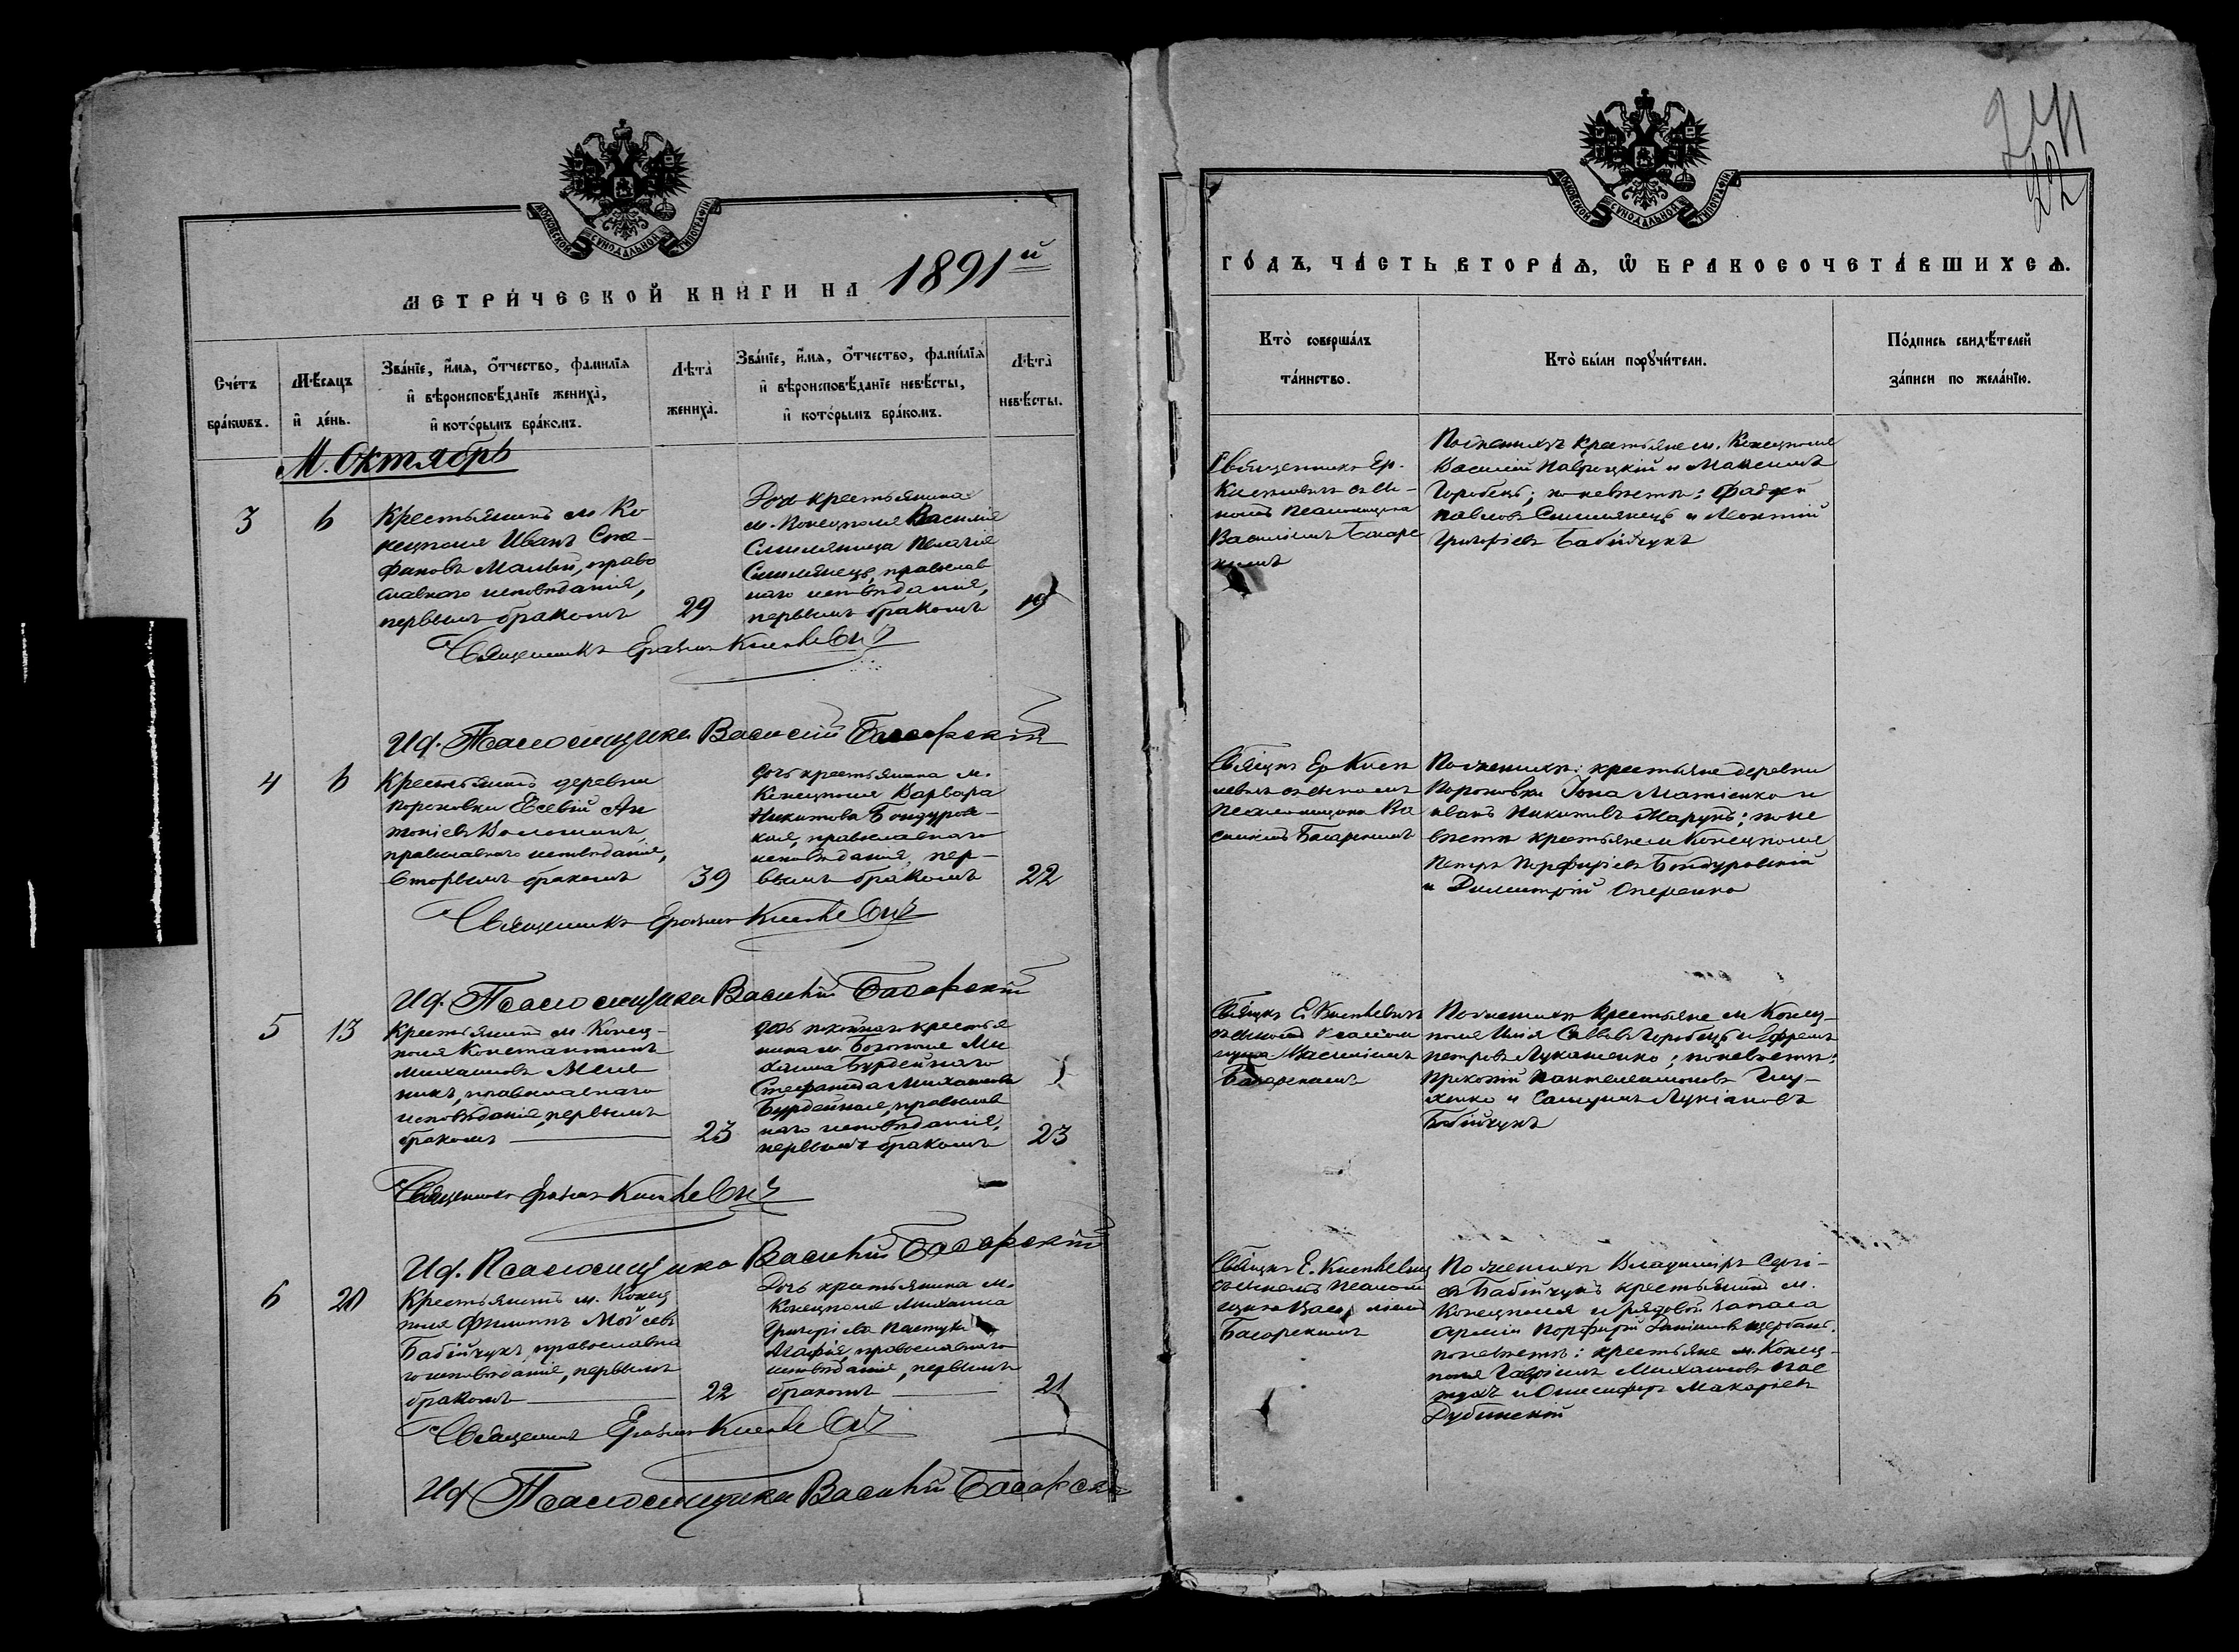 МОСКОВСКОЙ СѴНОДАЛЬНОЙ ТИПОГРАФІИ
МЕТРИ́ЧЕСКОЙ КНИ́ГИ НА 1891й
Сче́тъ бра́кѡвъ.
Мѣ́сяцъ и де́нь.
Зва́нїе, и́мѧ, ѻ́тчество, фамилїѧ
и҆ вѣроисповѣ́данїе жениха̀,
и҆ кото́рымъ бра́комъ.
Лѣта̀ жениха̀.
Зва́нїе, и́мѧ, ѻ́тчество, фами́лїѧ
и҆ вѣроисповѣ́данїе невѣ́сты,
и҆ кото́рымъ бра́комъ.
Лѣта̀ невѣ́сты.
М. Октябрь
3
6
Крестьянинъ м. Ко
нецполя Иванъ Сте-
фановъ Малый, право
славнаго исповѣданія,
первымъ бракомъ
29
Дочь крестьянина
м. Конецполя Василія
Смилянца Пелагія
Смилянецъ, православ
наго исповѣданія,
первымъ бракомъ
19
Священникъ Еразмъ Кнеевичъ
И. д. Псаломщика Василій Басарскій
4
6
Крестьянинъ деревни
Пороновки Евсевій Ан
тоніевъ Волошинъ,
православнаго исповѣданія,
вторымъ бракомъ
39
Дочь крестьянина м.
Конецполя Варвара
Никитова Бондуров-
ская, православнаго
исповѣданія, пер-
вымъ бракомъ
22
Священникъ
И. д. Псаломщика Василій Басарскій
5
13
Крестьянинъ м. Конец-
поля Константинъ
Михаиловъ Мель
никъ, православнаго
исповѣданія, первымъ
бракомъ
23
Дочь покойнаго крестья
нина м. Богополя Ми
хаила Бурдейнаго
Стефанида Михаилова
Бурдейная, православ
наго исповѣданія,
первымъ бракомъ
23
Священникъ
И. д. Псаломщика Василій Басарскій
6
20
Крестьянинъ м. Конец
поля Филиппъ Мойсеев
Бабійчукъ, православна
го исповѣданія, первымъ
бракомъ
22
Дочь крестьянина м.
Конецполя Михаила
Григоріева Пастуха
Агафія, православнаго
исповѣданія, первымъ
бракомъ
21
Священникъ
И. д. Псаломщика Василій Басарскій
22
МОСКОВСКОЙ СѴНОДАЛЬНОЙ ТИПОГРАФІИ
ГО́ДЪ, ЧА́СТЬ ВТОРА́Ѧ, Ѡ҆ БРАКОСОЧЕТА́ВШИХСѦ.
Кто̀ соверша́лъ
та́инство.
Кто̀ бы́ли порꙋчи́тели.
По́дпись свидѣ́телей
за́писи по жела́нїю.
Священникъ Ер.
псаломщика
Василіемъ Басарс
кимъ
По женихѣ крестьяне м. Конецполя
Василій Навроцкій и Максимъ
Горобецъ; по невѣстѣ: Фаддей
Павловъ Смилянецъ и Леонтій
Григоріевъ Бабійчукъ
псаломщика Ва
силіемъ Басарскимъ
По женихѣ: крестьяне деревни
Пороновки Іона Матіенко и
Иванъ Никитовъ Марунъ; по не
вѣстѣ крестьяне м. Конецполя
Петръ Порфиріевъ Бондуровскій
и Димитрій Опереико
Василіемъ
Басарскимъ
По женихѣ крестьяне м. Конец-
поля Илія Саввовъ Горобецъ и Ефремъ
Петровъ Лукашенко; по невѣстѣ:
Прокопій Пантелеимоновъ Глу-
щенко и Самуилъ Лукіановъ
Бабійчукъ
Басарскимъ
По женихѣ Владимиръ Сергі-
евъ Бабійчукъ крестьянинъ м.
Конецполя и рядовой запаса
арміи Порфирій Даніиловъ Щербань,
по невѣстѣ: крестьяне м. Конец-
поля Гавріилъ Михаиловъ Пас
тухъ и Онисифоръ Макаріевъ
Дубинскій